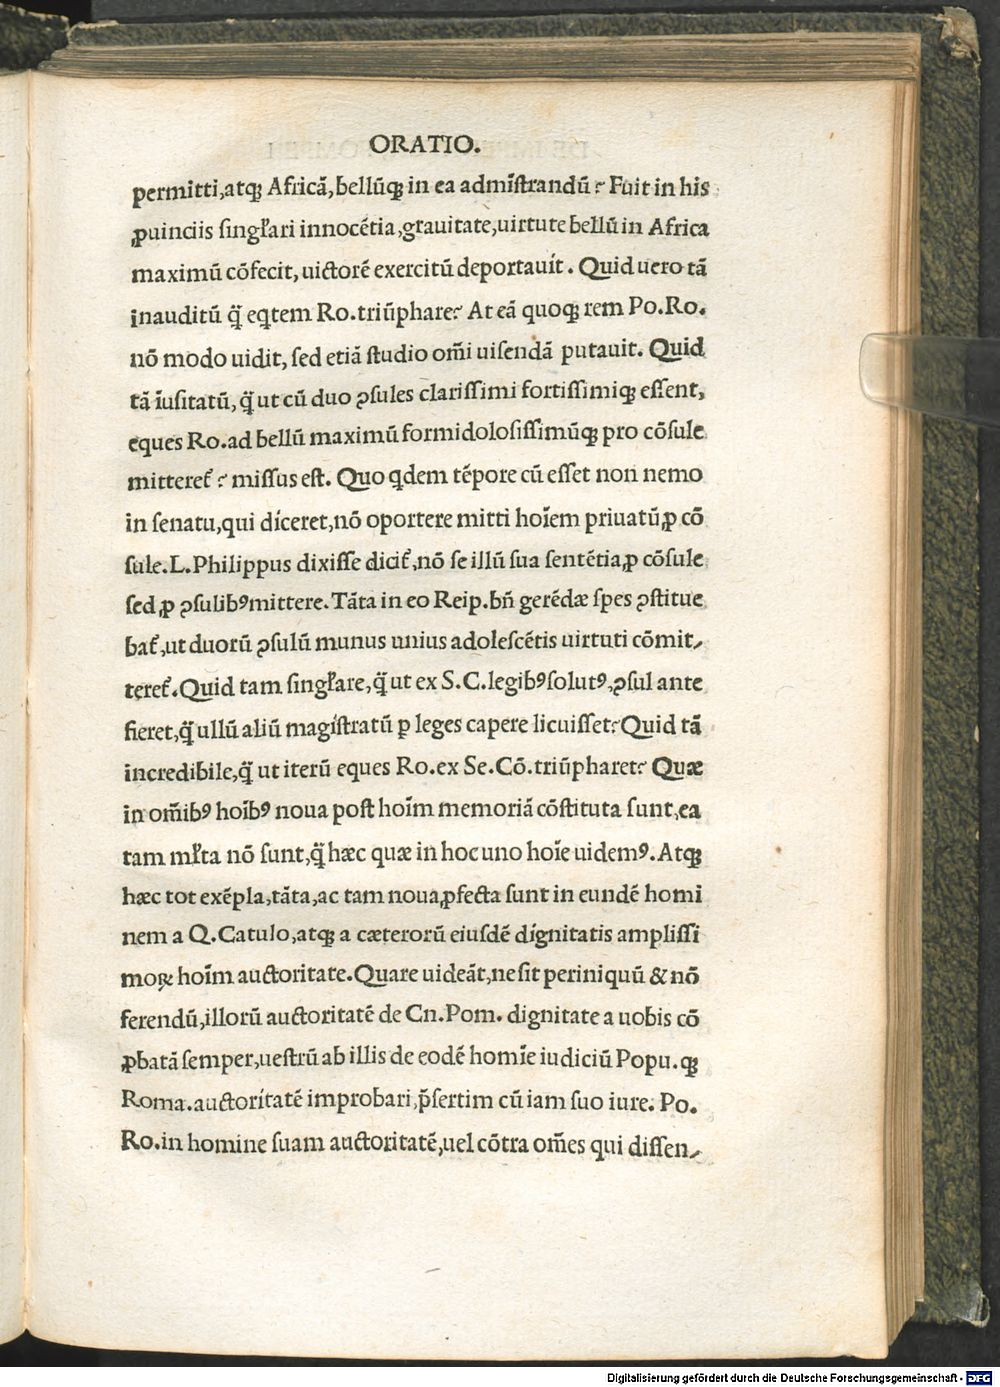 ORATIO.
permitti,atqꝫ Africã,bellũqꝫ in ea admĩſtrandũ? Fuit in his
ꝓuinciis ſingl̃ari innocẽtia,grauitate,uirtute bellũ in Africa
maximũ cõfecit,uictorẽ exercitũ deportauit. Quid uero tã
inauditũ q̃̈ eqtem Ro.triũphare? At eã quoqꝫ rem Po.Ro.
nõ modo uidit, ſed etiã ſtudio om̃i uiſendã putauit. Quid
tã ĩuſitatũ, q̃̈ ut cũ duo ꝯſules clariſſimi fortiſſimiqꝫ eſſent,
eques Ro.ad bellũ maximũ formidoloſiſſimũqꝫ pro cõſule
mitteret᷑? miſſus eſt. Quo qdem tẽpore cũ eſſet non nemo
in ſenatu,qui diceret,nõ oportere mitti hoĩem priuatũ,ꝓ cõ
ſule.L.Philippus dixiſſe dicit᷑,nõ ſe illũ ſua ſentẽtia,ꝓ cõſule
ſed,ꝓ ꝯſulibꝰ mittere.Tãta in eo Reip.bñ gerẽdæ ſpes ꝯſtitue
bat᷑,ut duorũ ꝯſulũ munus unius adoleſcẽtis uirtuti cõmit⸗
teret᷑.Quid tam ſingl̃are,q̃̈ ut ex S.C.legibꝰ ſolutꝰ,ꝯſul ante
fieret,q̃̈ ullũ aliũ magiſtratũ p leges capere licuiſſet?Quid tã
incredibile,q̃̈ ut iterũ eques Ro.ex Se.Cõ.triũpharet? Quæ
in om̃ibꝰ hoĩbꝰ noua poſt hoĩm memoriã cõſtituta ſunt,ea
tam ml̃ta nõ ſunt,q̃̈ hæc quæ in hoc uno hoĩe uidemꝰ. Atqꝫ
hæc tot exẽpla,tãta,ac tam noua,ꝓfecta ſunt in eundẽ homi
nem a Q.Catulo,atqꝫ a cæterorũ eiuſdẽ dignitatis ampliſſi
moꝝ hoĩm auctoritate.Quare uideãt,ne ſit periniquũ & nõ
ferendũ,illorũ auctoritatẽ de Cn.Pom. dignitate a uobis cõ
ꝓbatã ſemper,ueſtrũ ab illis de eodẽ homĩe iudiciũ Popu.qꝫ
Roma.auctoritatẽ improbari,p̃ſertim cũ iam ſuo iure. Po.
Ro.in homine ſuam auctoritatẽ,uel cõtra om̃es qui diſſen⸗
Digitalisierung gefördert durch die Deutsche Forschungsgemeinschaft - DFG